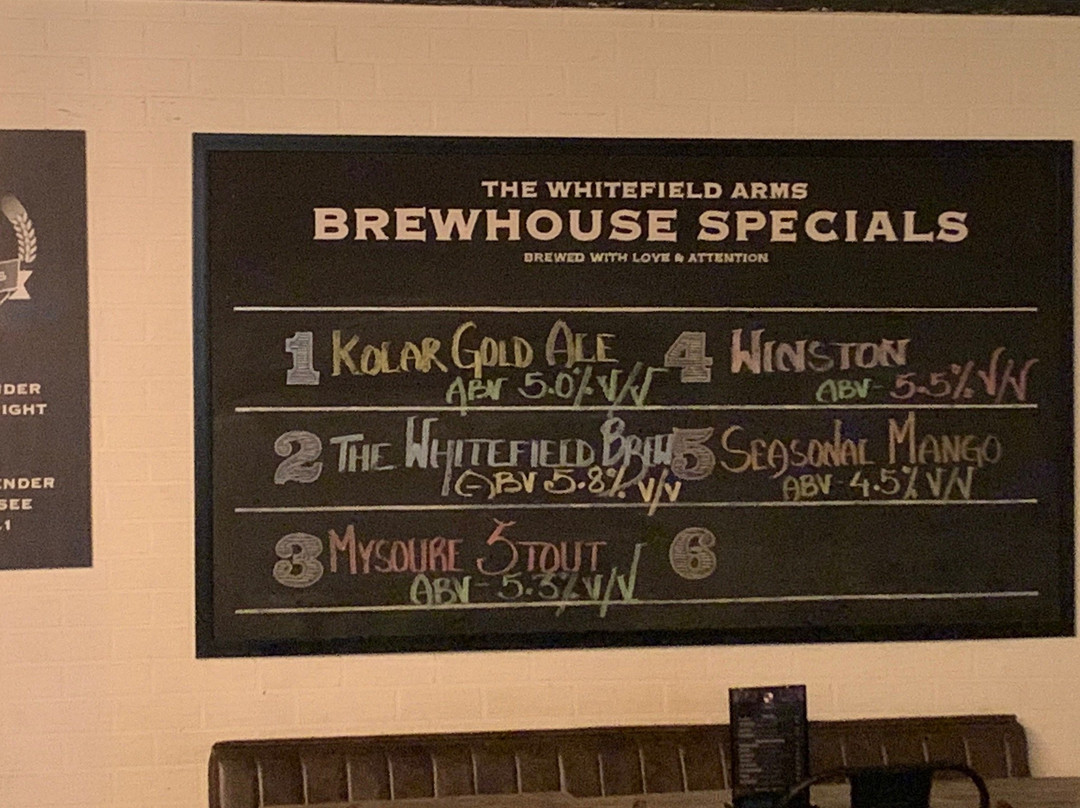 THE WHITEFIELD ARMS
BREWHOUSE SPECIALS
BREWED WITH LOVE & ATTENTION
1 KOLAR GOLD ALE
ABV 5.0% V/V
2 THE WHITEFIELD BREW
ABV 5.8% V/V
3 MYSOURE STOUT
ABV - 5.3% V/V
4 WINSTON
ABV - 5.5% V/V
5 SEASONAL MANGO
ABV - 4.5% V/V
6
NDER
IGHT
ENDER
SEE
.1